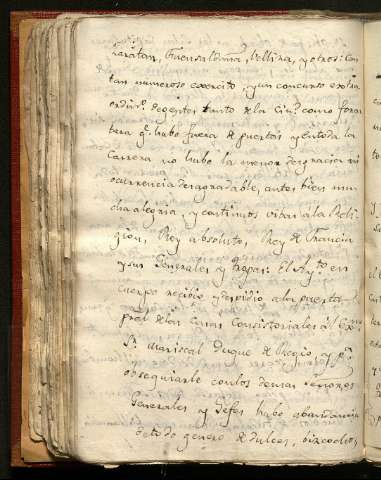 Zaratan, Fuensaldaña, Villina, y otros: con
tan numeroso exercito, y un concurso extra
ordin.º de gentes tanto de la Ciu.d como foras
tera q.e hubo fuera de puertas y en toda la
Carrera no hubo la menor desgracia ni
ocurrencia desagradable, antes bien mu
cha alegria, y continuos vivas a la Reli
gion, Rey absoluto, Rey de Francia
y sus Generales y tropas: El Ay.to en
cuerpo recibio y despidio a la puerta
pral de las Casas Consistoriales al Ex.mo
S.r Mariscal Duque de Regio, y p.a
obsequiarle con los demas señores
Generales y Gefes hubo abundancia
de todo genero de dulces, bizcochos,